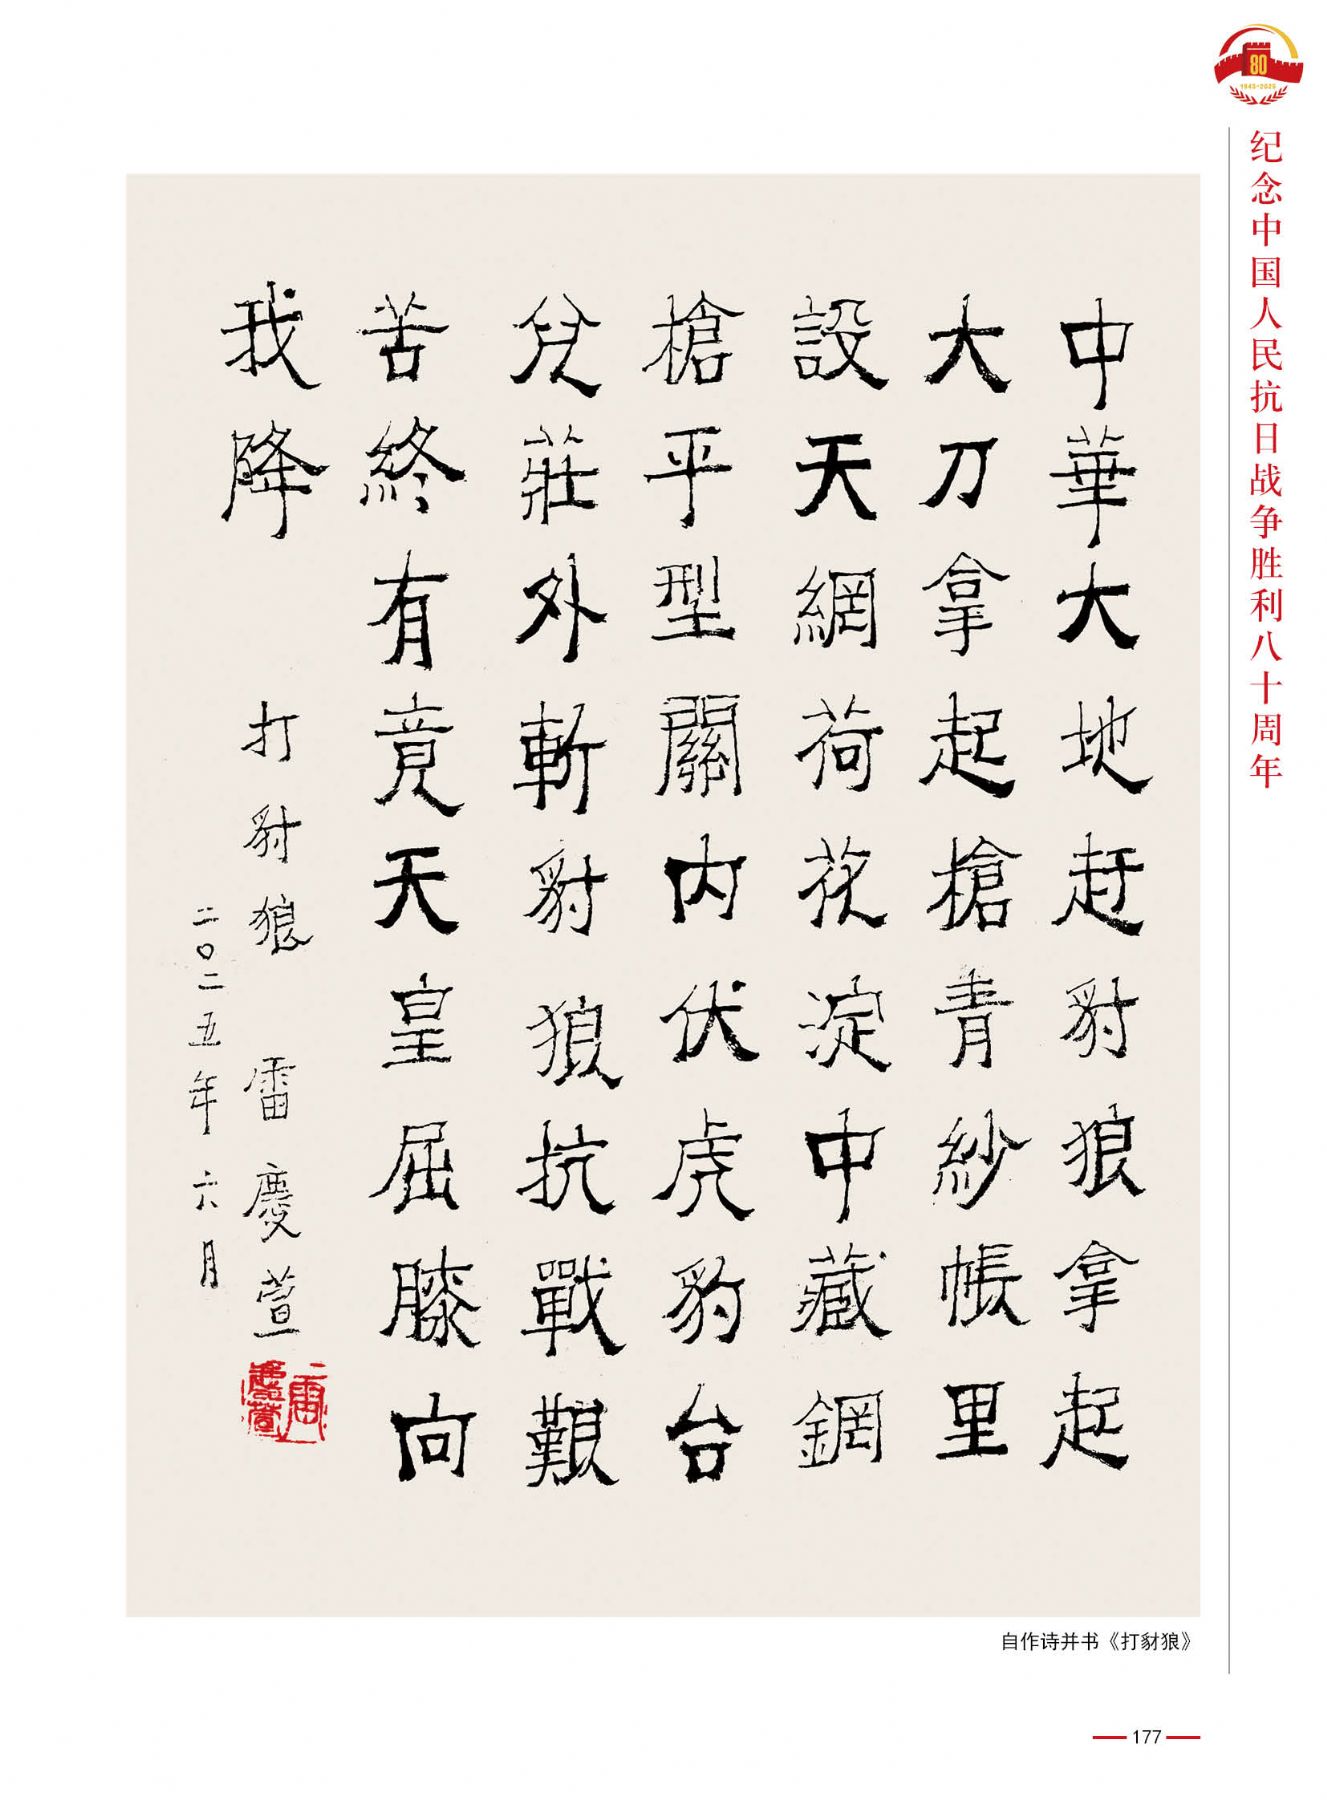 80
1945-2025
纪念中国人民抗日战争胜利八十周年
中華大地赶豺狼拿起
大刀拿起槍青紗帳里
設天網荷花淀中藏鋼
槍平型關内伏虎豹台
兒莊外斬豺狼抗戰艱
苦終有竟天皇屈膝向
我降 打豺狼 雷慶萱
二〇二五年六月
雷慶萱
自作诗并书《打豺狼》
177